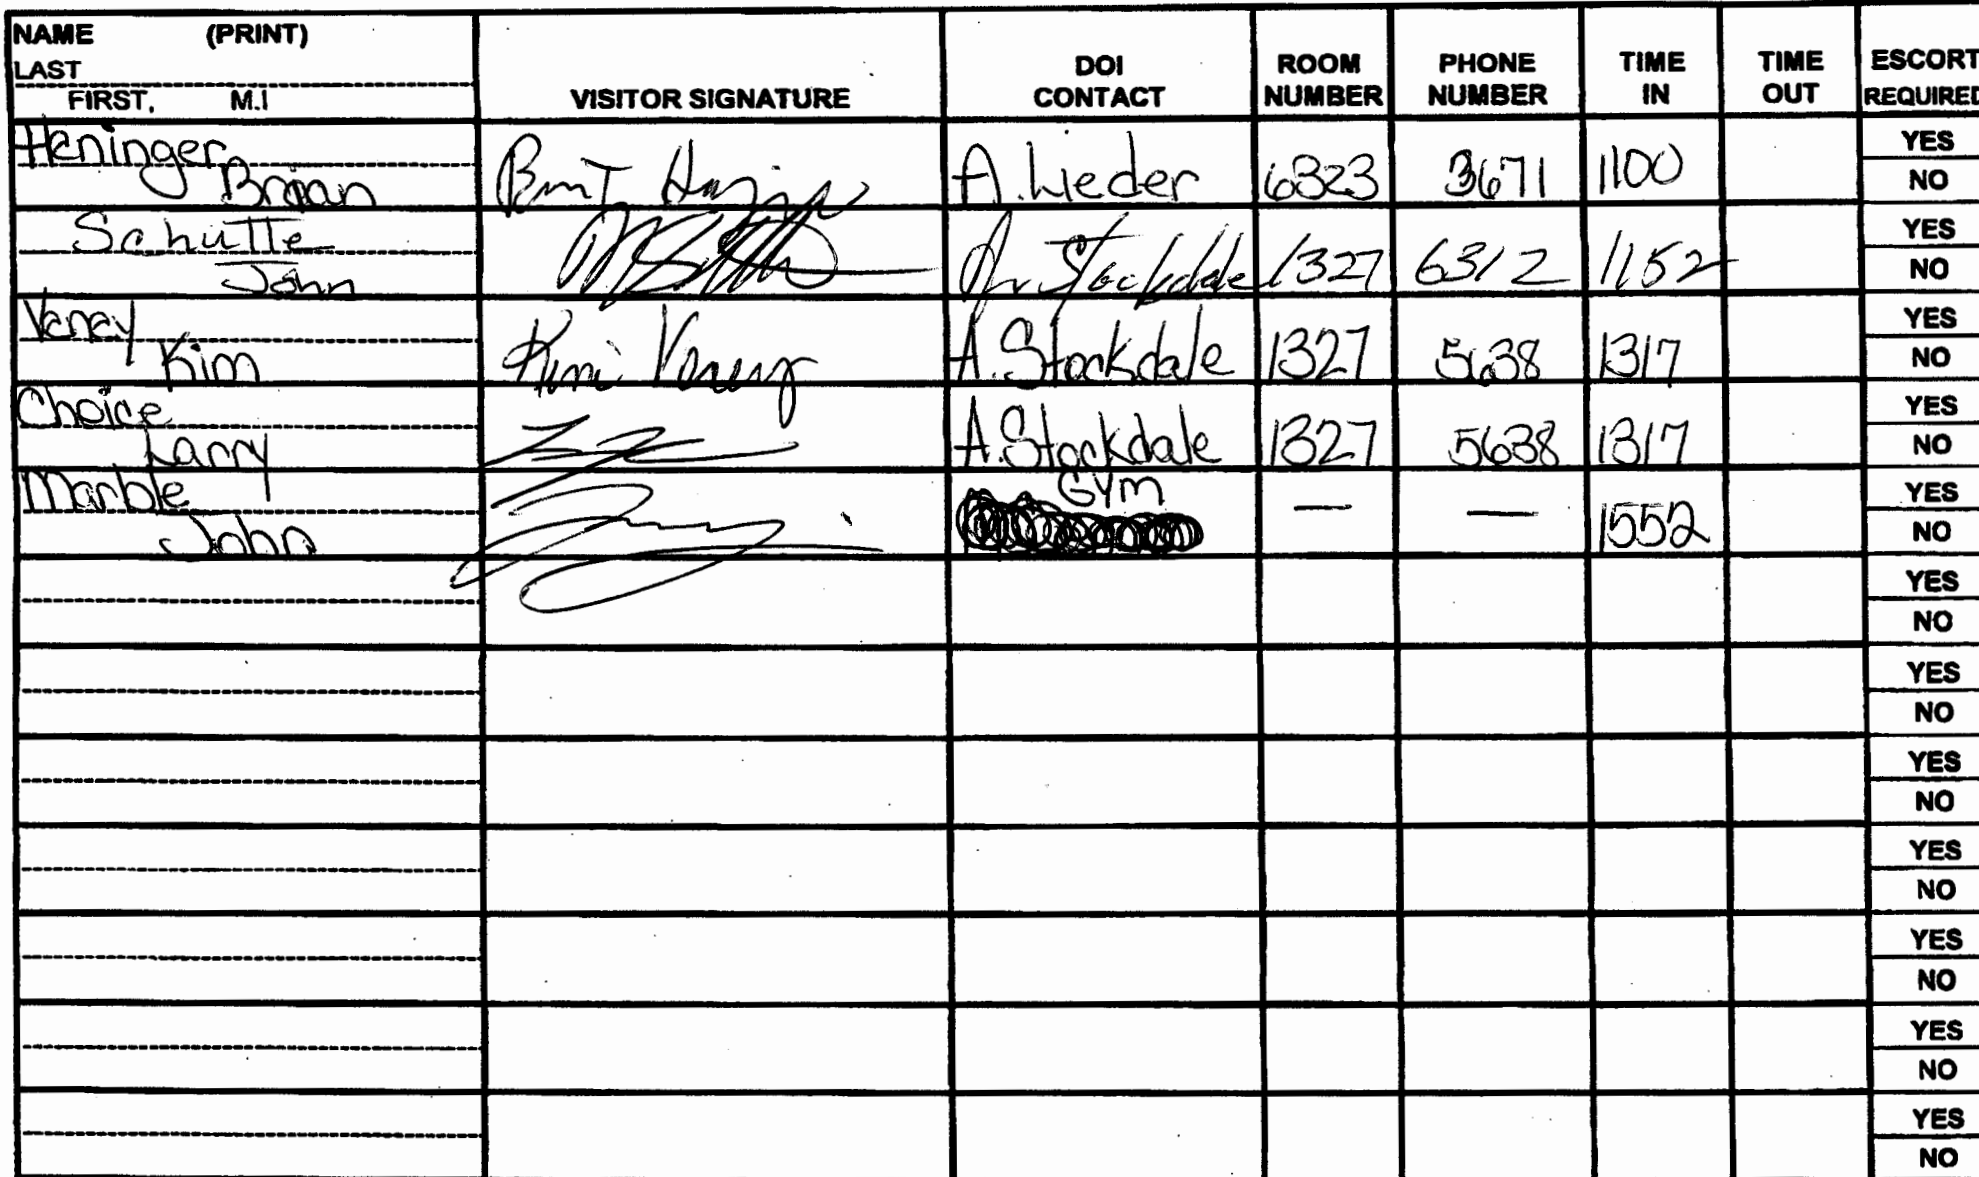 NAME (PRINT)
LAST
FIRST, M.I
VISITOR SIGNATURE
DOI CONTACT
ROOM NUMBER
PHONE NUMBER
TIME IN
TIME OUT
ESCORT REQUIRED
Heninger
Brian A. Lieder 6323 3671 1100
YES
NO
Schutte
John Stockdale 1327 6312 1152
YES
NO
Veney
Kim Kim Veney A. Stockdale 1327 5638 1317
YES
NO
Choice
Larry A. Stockdale 1327 5638 1317
YES
NO
Marble
John Gym — — 1552
YES
NO
YES
NO
YES
NO
YES
NO
YES
NO
YES
NO
YES
NO
YES
NO